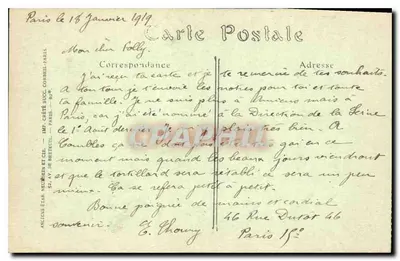 Paris le 18 Janvier 1919
Carte Postale
Mon cher Polly,
Correspondance
Adresse
J'ai reçu ta carte et je te remercie de tes souhaits.
A ton tour je t'envoie les notres pour toi et toute
ta famille. Je ne suis plus à Amiens mais à
Paris, car j'ai été nommé à la Direction de la Seine
le 1er Août dernier. Je bien. A
Combles ça en ce
moment mais quand les beaux jours viendront
et que le tortillard sera rétabli à sera un peu
mieux. Ca se refera petit à petit.
Bonne poignée de mains et cordial
souvenir. E. Thoury
46 Rue Dutot 46
Paris 15e
CPARAMA